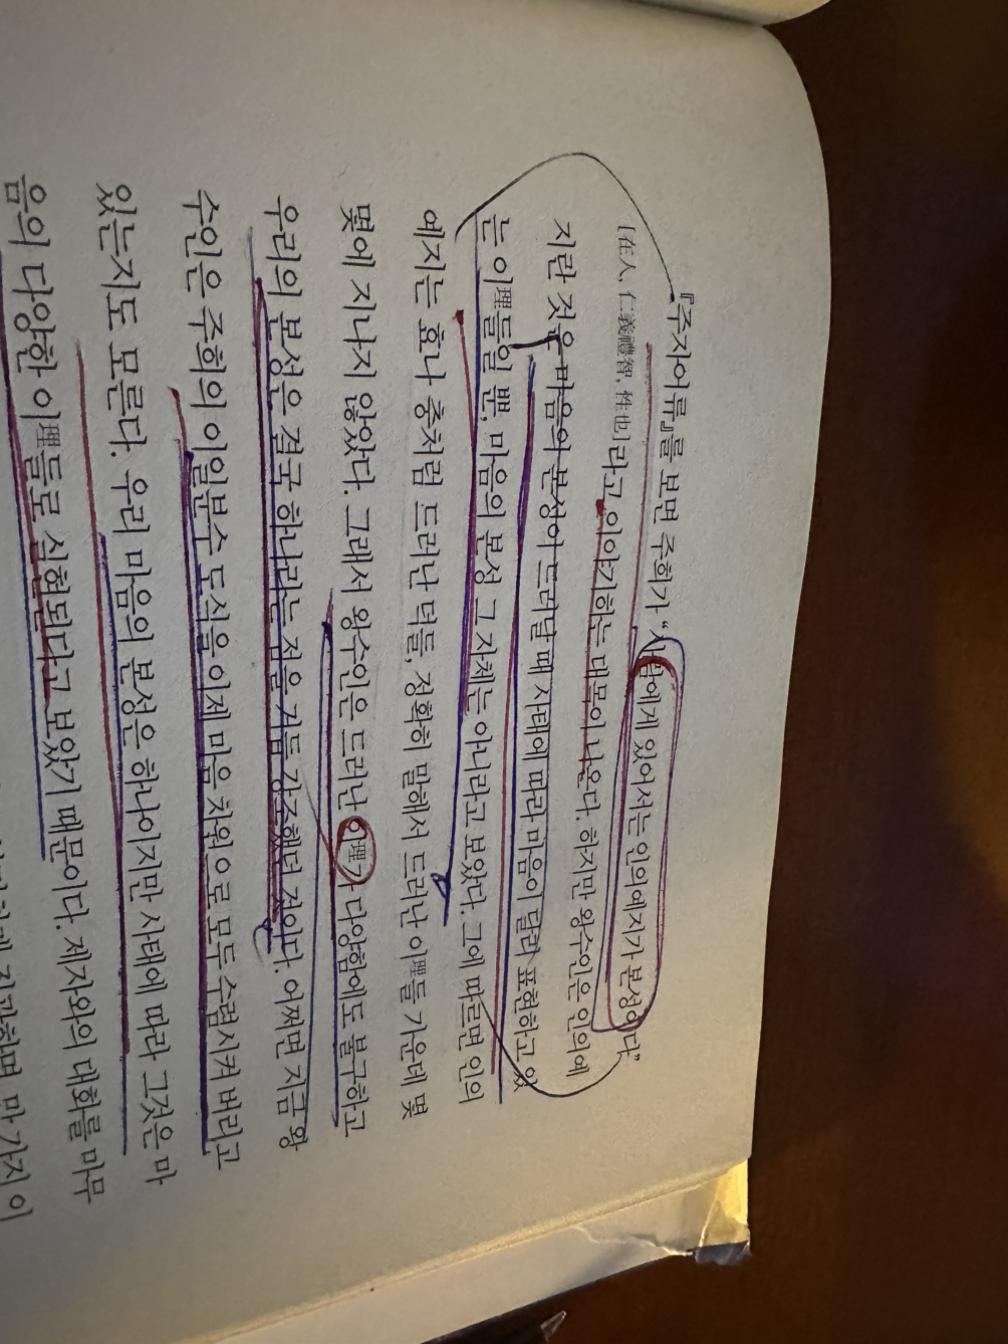 『주자어류』를 보면 주희가 “사람에게 있어서는 인의예지가 본성이다”
[在人, 仁義禮智, 性也]라고 이야기하는 대목이 나온다. 하지만 왕수인은 인의예
지란 것은 마음의 본성이 드러날 때 사태에 따라 마음이 달리 표현하고 있
는 이理들일 뿐, 마음의 본성 그 자체는 아니라고 보았다. 그에 따르면 인의
예지는 효나 충처럼 드러난 덕들, 정확히 말해서 드러난 이理들 가운데 몇
몇에 지나지 않았다. 그래서 왕수인은 드러난 이理가 다양함에도 불구하고
우리의 본성은 결국 하나라는 점을 거듭 강조했던 것이다. 어쩌면 지금 왕
수인은 주희의 이일분수 도식을 이제 마음 차원으로 모두 수렴시켜 버리고
있는지도 모른다. 우리 마음의 본성은 하나이지만 사태에 따라 그것은 마
음의 다양한 이理들로 실현된다고 보았기 때문이다. 제자와의 대화를 마무
만 가지 이